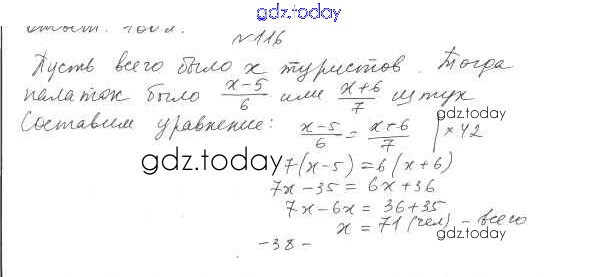 gdz.today
ответ: 100 л.
№116
Пусть всего было x туристов. Тогда
палаток было (x-5)/6 или (x+6)/7 штук
Составим уравнение: (x-5)/6 = (x+6)/7 | ×42
gdz.today
gdz.today
7(x-5)=6(x+6)
7x-35=6x+36
7x-6x=36+35
x=71 (чел) - всего
gdz.today
-38-